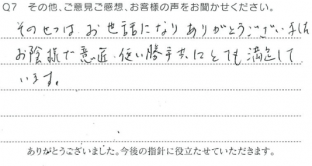 Q7 その他、ご意見ご感想、お客様の声をお聞かせください。
そのせつは お世話になり ありがとうございました
お陰様で 意匠、使い勝手共にとても満足して
います。
ありがとうございました。今後の指針に役立たせていただきます。